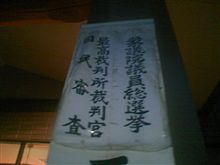 衆議院議員総選挙
最高裁判所裁判官
国民審査